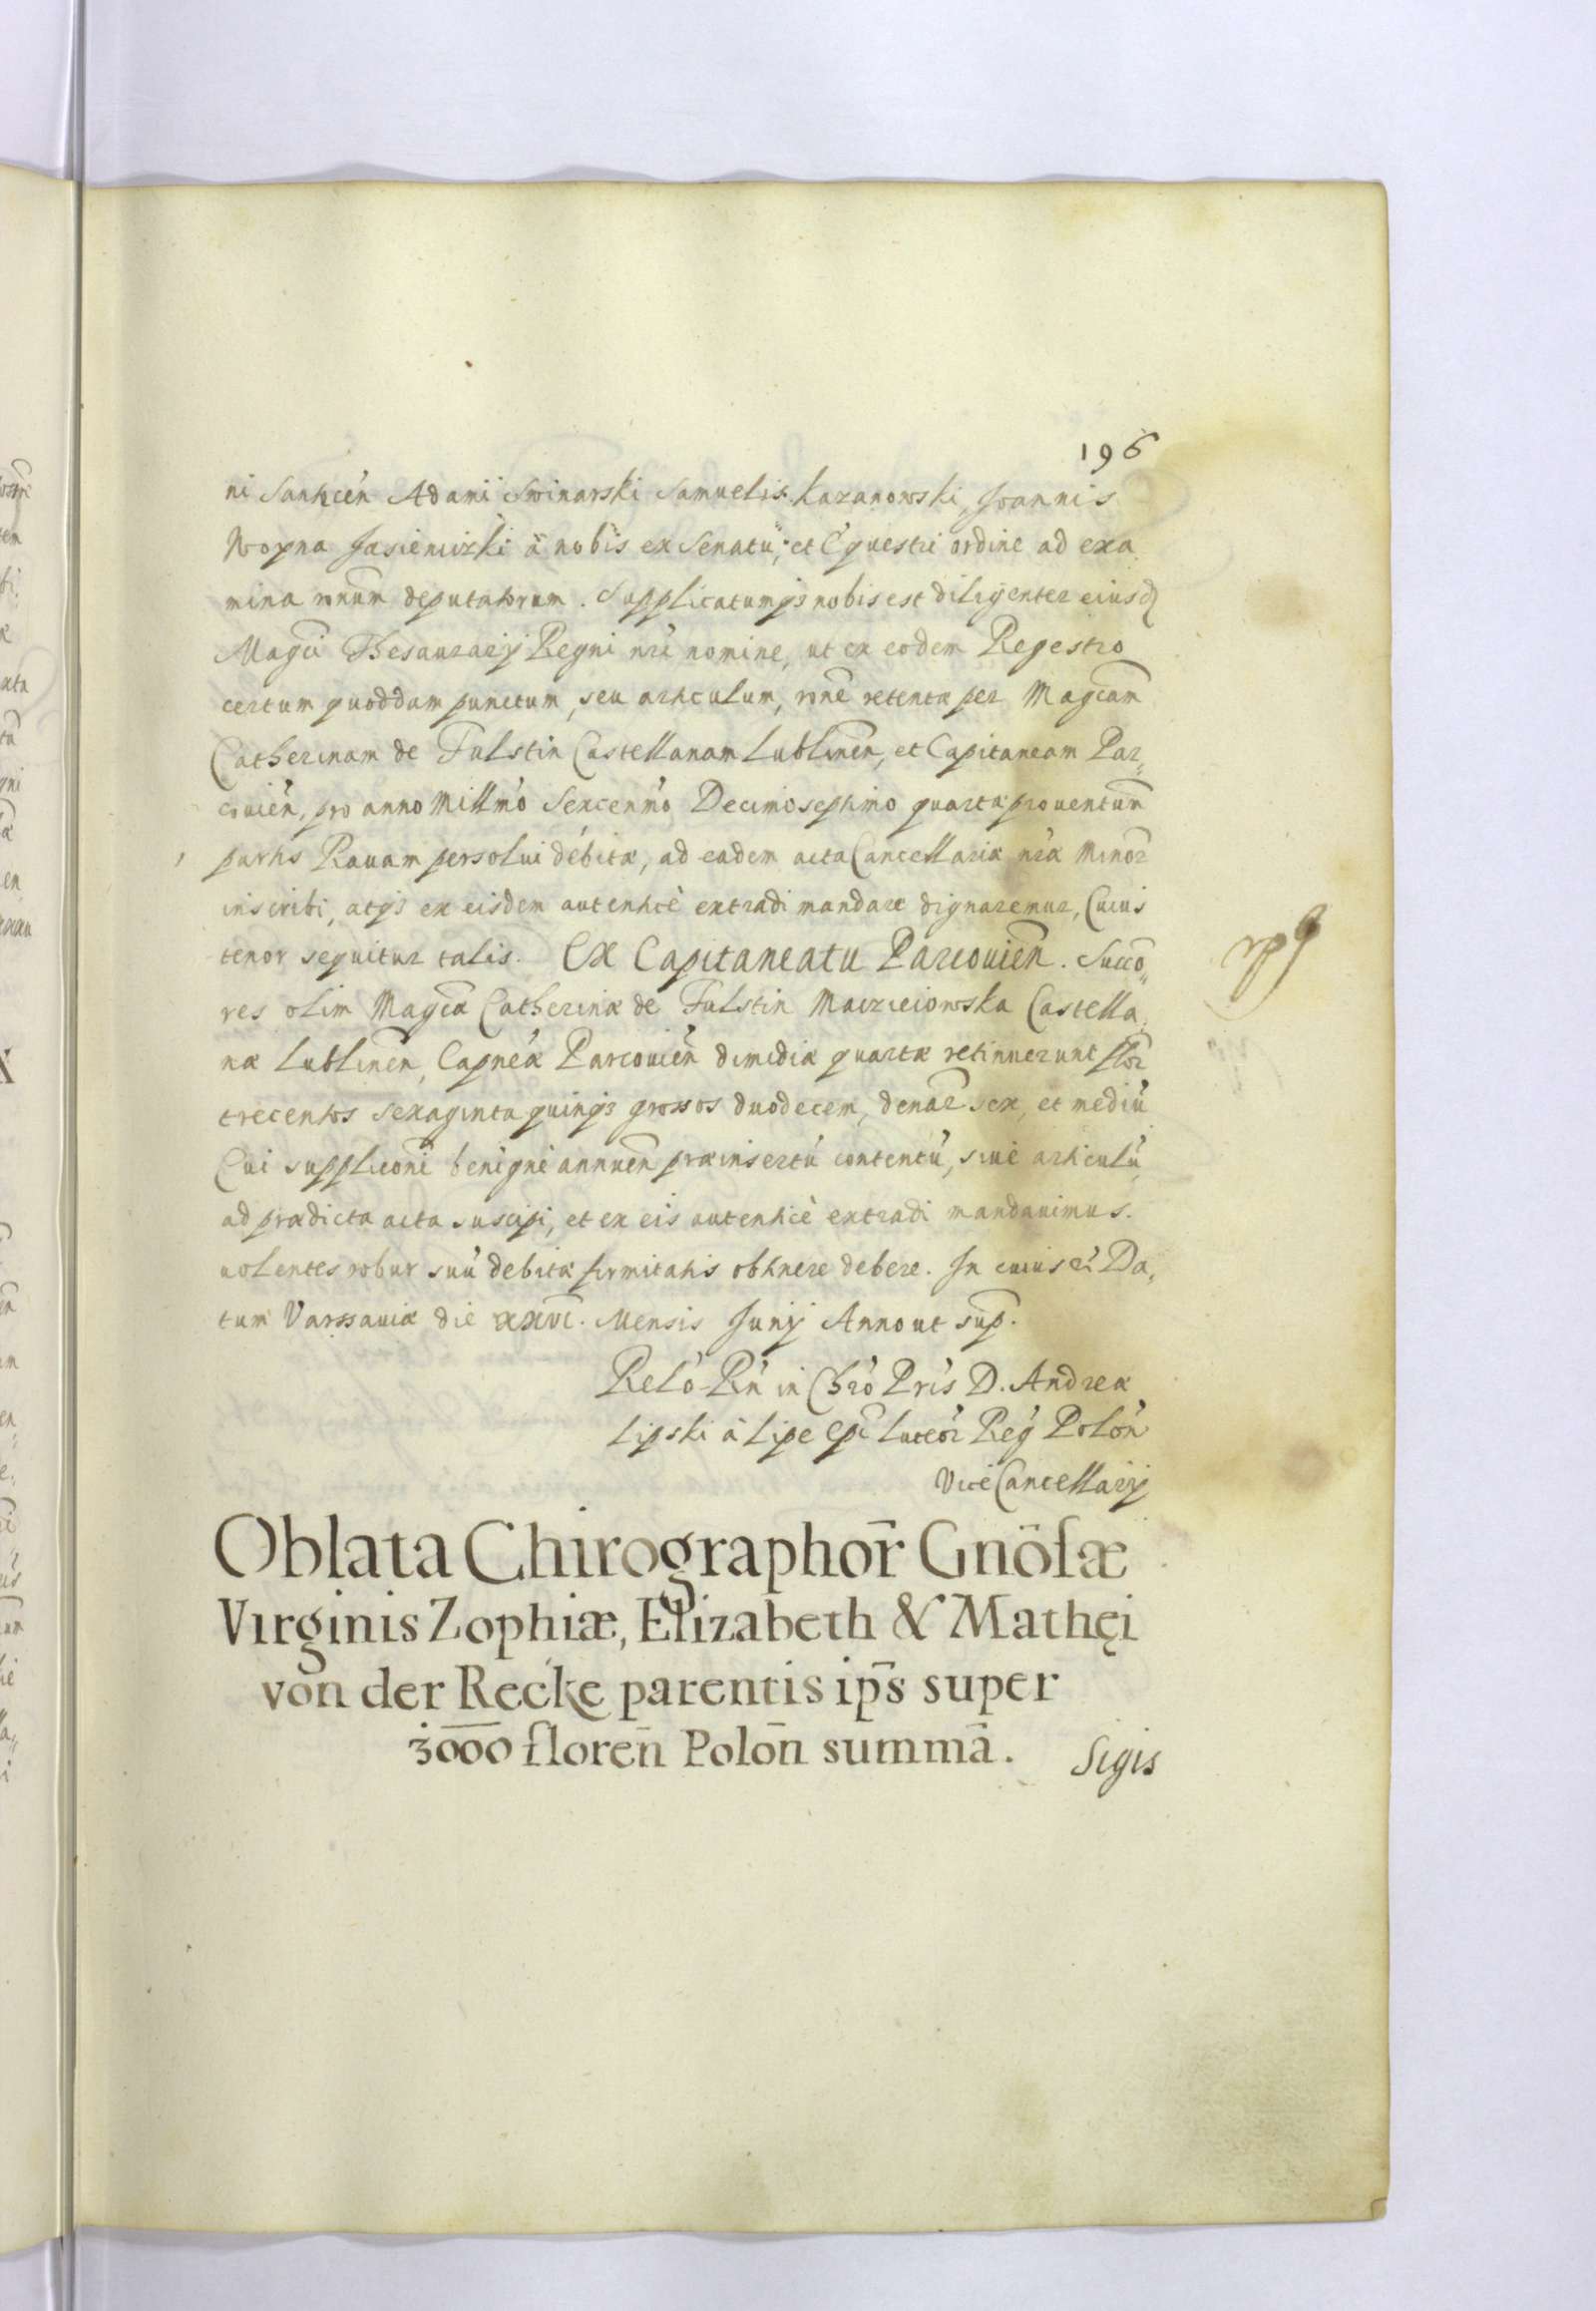 196
ni Sanhcen Adami Swinarski Samuelis Kazanowski, Joannis
Woyna Jasieniczki à nobis ex Senatu, et Equestri ordine ad exa
mina ronum deputatorum. Supplicatumqz nobis est diligenter eiusd
Magci Thesaurarij Regni nri nomine, ut ex eodem Regestro
certum quoddam punctum, seu articulum, rone retentæ per Magcam
Catherinam de Fulstin Castellanam Lublinen, et Capitaneam Par„
couien, pro anno Millmo Sexcenmo Decimoseptimo quartæ prouentum
partis Rauam persolui debitæ, ad eadem acta Cancellariæ nræ Minor
inscribi, atqz ex eisdem autenticè extradi mandare dignaremur, Cuius
tenor sequitur talis. Ex Capitaneatu Parcouien. Succo„
res olim Magcæ Catherinæ de Fulstin Maczieiowska Castella„
næ Lublinen, Capneæ Parcouien dimidiæ quartæ retinuerunt flor
trecentos sexaginta quinqz grossos duodecem, denar sex, et mediu
Cui supplicòni benigne annuen præinsertu contentu, siue articulu,
ad prædicta acta suscipi, et ex eis autenticè extradi mandauimus.
uolentes robur suu debitæ firmitatis obtinere debere. In cuius ei Da„
tum Varssauiæ die xxvi. Mensis Junij Anno ut sup.
Relo Rn in Chro Pris D. Andreæ
Lipski à Lipe Epi Luceor Reg Polon
ViceCancellarij
Oblata Chirographor̄ Gnōsæ
Virginis Zophiæ, Elizabeth & Mathęi
von der Recke parentis ip̄s super
3000 floren̄ Polon̄ summā.
Sigis